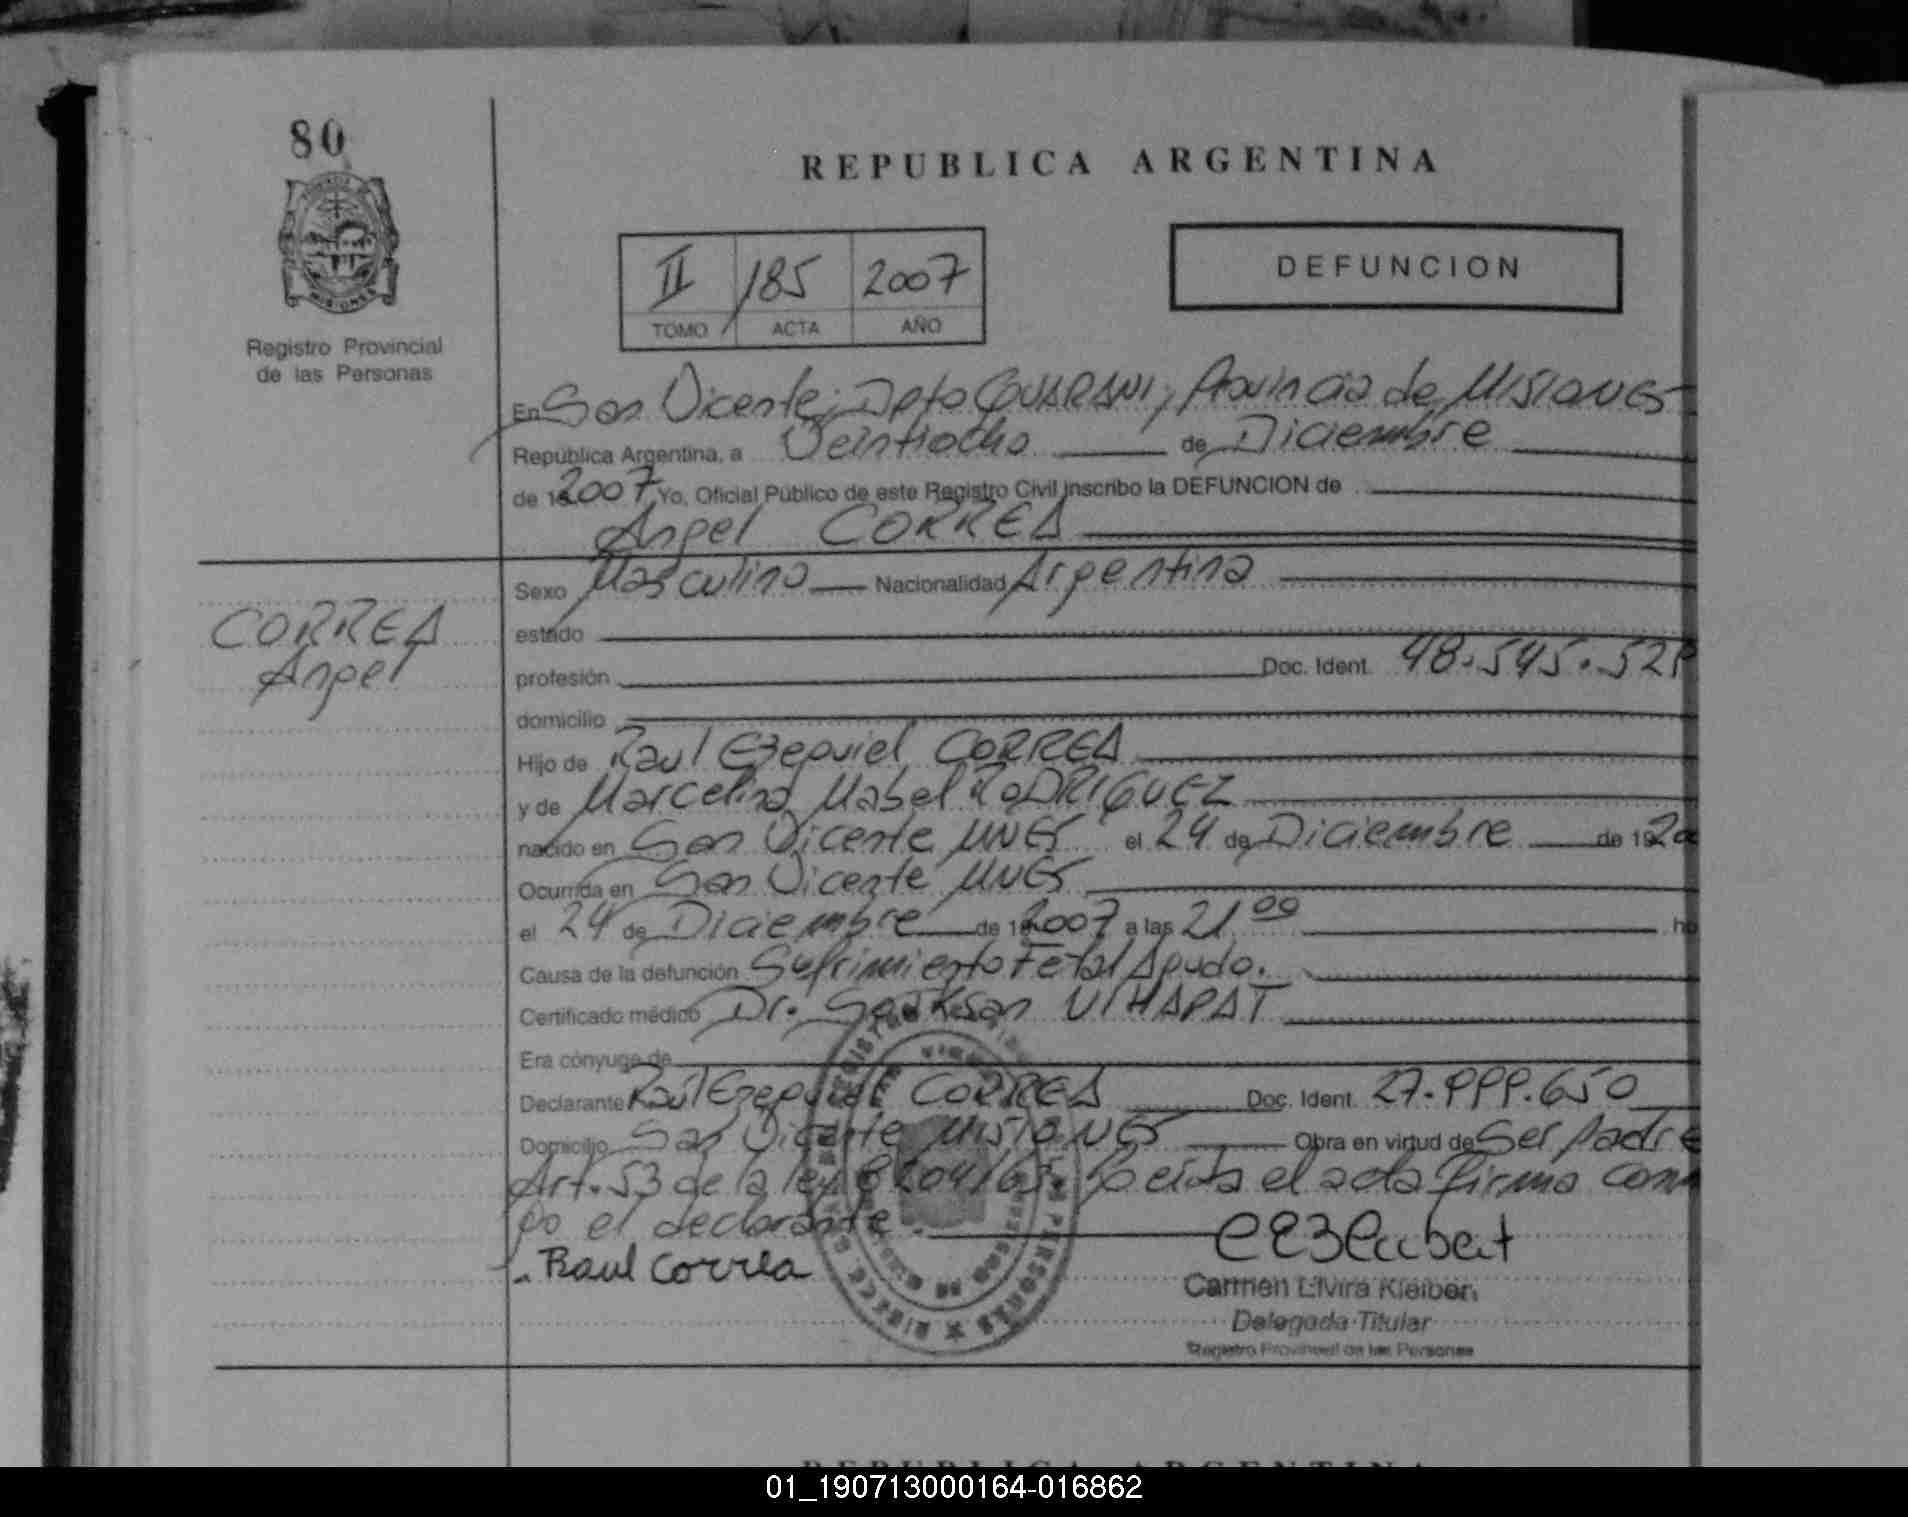 80
REPUBLICA ARGENTINA
II 185 2007
TOMO ACTA AÑO
DEFUNCION
MISIONES
Registro Provincial
de las Personas
En San Vicente, Dpto GUARANI, Provincia de MISIONES
República Argentina, a Veintiocho de Diciembre
de 2007 Yo, Oficial Público de este Registro Civil inscribo la DEFUNCION de
Angel CORREA
Sexo Masculino Nacionalidad Argentina
CORREA
Angel
estado
profesión Doc. Ident. 48.545.52
domicilio
Hijo de Raul Ezequiel CORREA
y de Marcelina Mabel RODRIGUEZ
nacido en San Vicente MNES el 24 de Diciembre de 19 20
Ocurrida en San Vicente MNES
el 24 de Diciembre de 2007 a las 21 00 ho
Causa de la defunción Sufrimiento Fetal Agudo.
Certificado médico Dr.
Era cónyuge de
Declarante Raúl Ezequiel CORREA Doc. Ident. 27.999.650
Domicilio San Vicente MISIONES Obra en virtud de Ser padre
Art. 53 de la ley 8204/63 el acta firma
el declarante.
Raul Correa
Carmen Elvira Kleiber
Delegada Titular
Registro Provincial de las Personas
REPUBLICA ARGENTINA
01_190713000164-016862